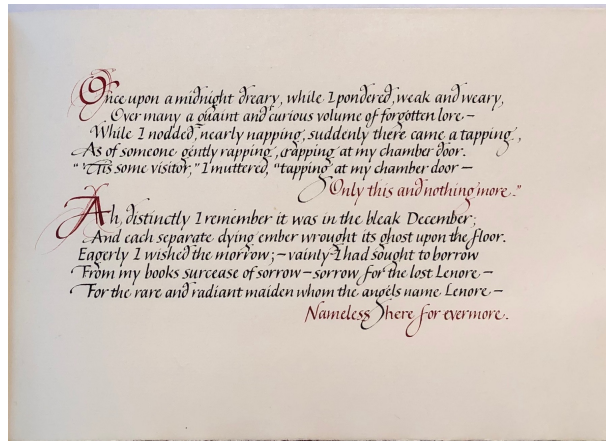 Once upon a midnight dreary, while I pondered, weak and weary,
Over many a quaint and curious volume of forgotten lore –
While I nodded, nearly napping, suddenly there came a tapping,
As of someone gently rapping, rapping at my chamber door.
"'Tis some visitor," I muttered, "tapping at my chamber door –
Only this and nothing more."
Ah, distinctly I remember it was in the bleak December;
And each separate dying ember wrought its ghost upon the floor.
Eagerly I wished the morrow; – vainly I had sought to borrow
From my books surcease of sorrow – sorrow for the lost Lenore –
For the rare and radiant maiden whom the angels name Lenore –
Nameless here for evermore.